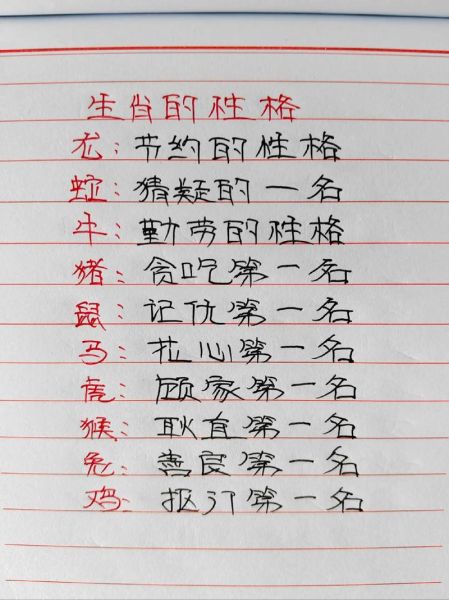 生肖的性格
龙：节约的性格
蛇：猜疑的一名
牛：勤劳的性格
猪：贪吃第一名
鼠：记仇第一名
马：拉心第一名
虎：顾家第一名
猴：耿直第一名
兔：善良第一名
鸡：抠门第一名